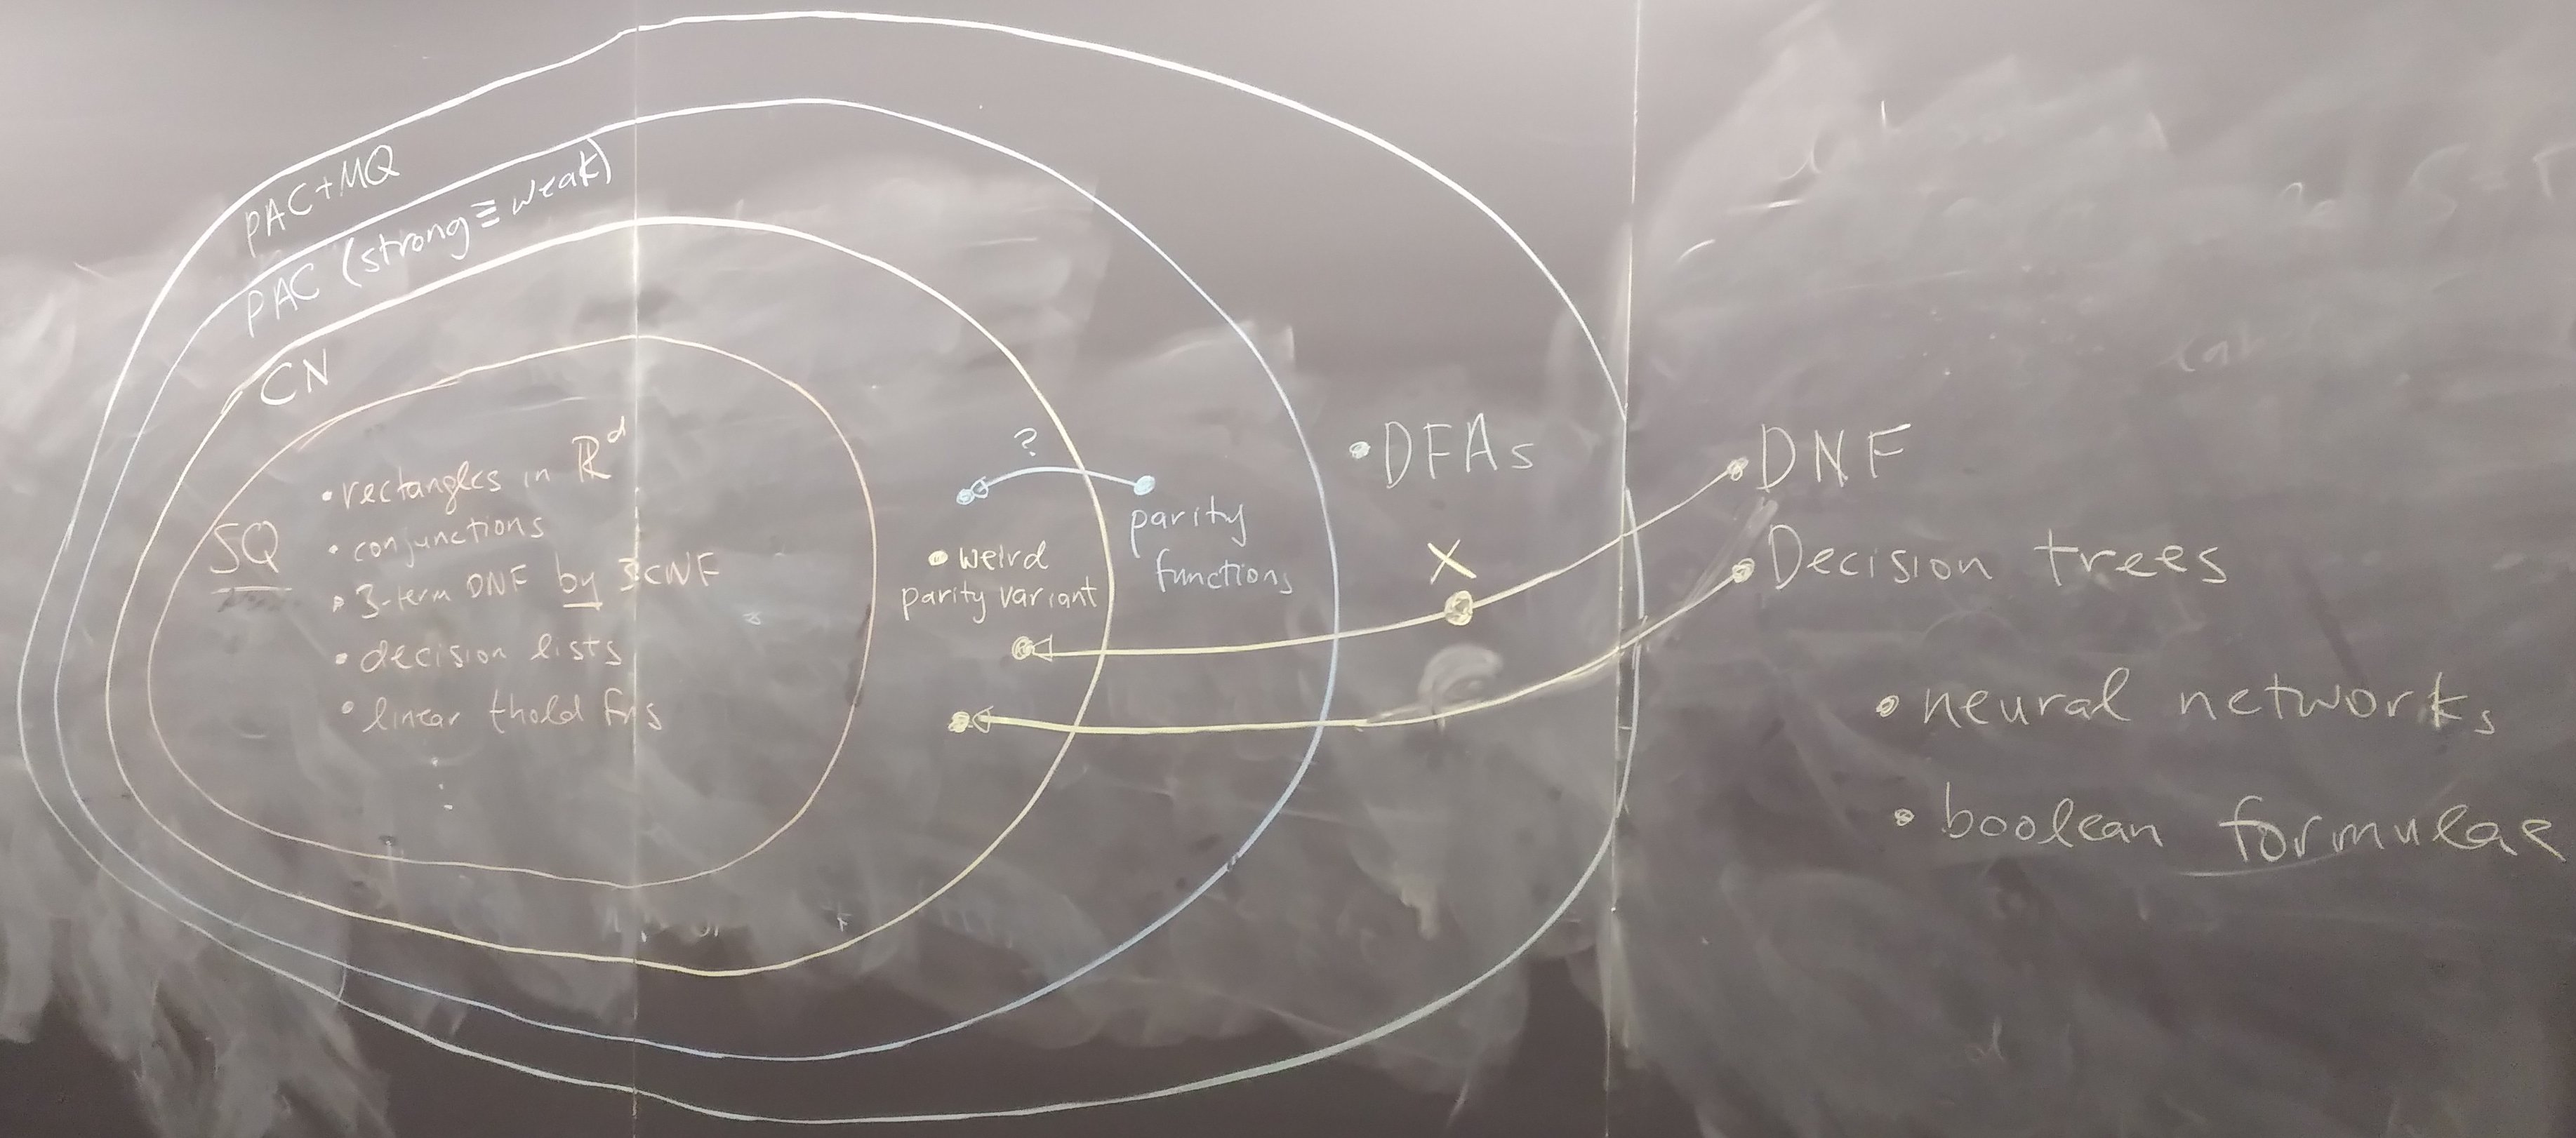 PAC+MQ
PAC (strong ≡ weak)
CN
SQ
• rectangles in ℝᵈ
• conjunctions
• 3-term DNF by 3CNF
• decision lists
• linear thold fns
?
parity
functions
• weird
parity variant
• DFAs
X
DNF
Decision trees
• neural networks
• boolean formulae